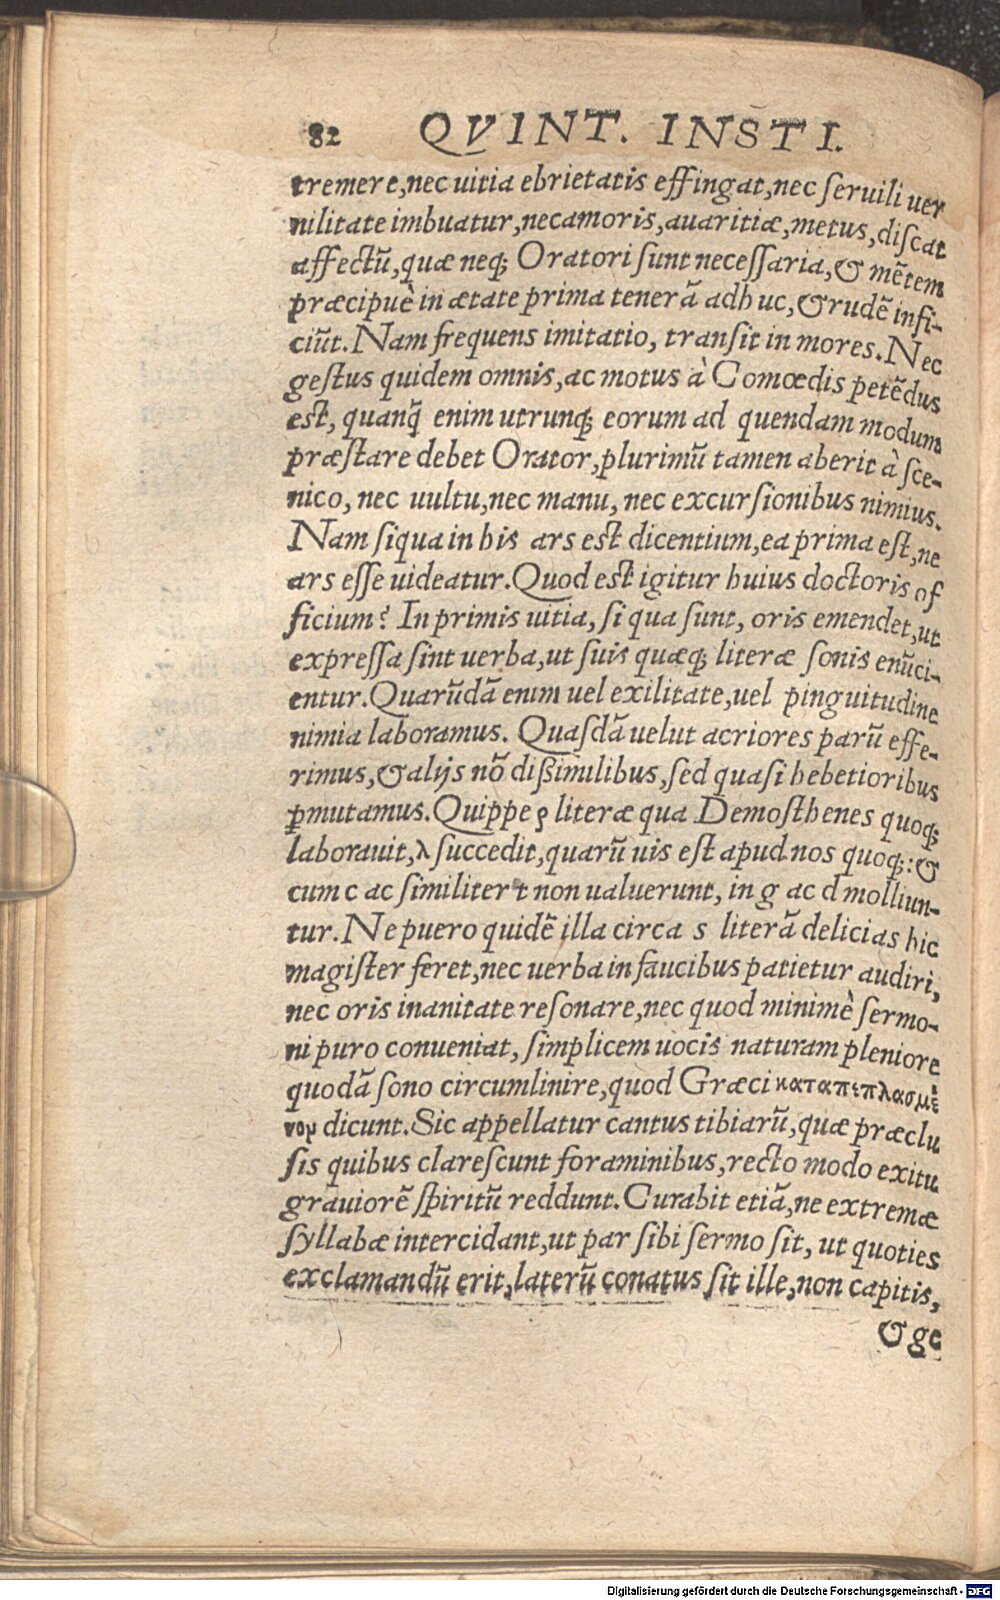 82 QVINT. INSTI.
tremere, nec uitia ebrietatis effingat, nec ſeruili uer
nilitate imbuatur, nec amoris, auaritiæ, metus, diſcat
affectũ, quæ neq; Oratori ſunt neceſſaria, & mẽtem
præcipuè in ætate prima tenerã adhuc, & rudẽ infi-
ciũt. Nam frequens imitatio, tranſit in mores. Nec
geſtus quidem omnis, ac motus à Comœdis petẽdus
eſt, quanq̃ enim utrunq; eorum ad quendam modum
præſtare debet Orator, plurimũ tamen aberit à ſce-
nico, nec uultu, nec manu, nec excurſionibus nimius.
Nam ſiqua in his ars eſt dicentium, ea prima eſt, ne
ars eſſe uideatur. Quod eſt igitur huius doctoris of
ficium? In primis uitia, ſi qua ſunt, oris emendet, ut
expreſſa ſint uerba, ut ſuis quæq; literæ ſonis enũci-
entur. Quarũdã enim uel exilitate, uel pinguitudine
nimia laboramus. Quaſdã uelut acriores parũ effe-
rimus, & alijs nõ dißimilibus, ſed quaſi hebetioribus
ꝑmutamus. Quippe ρ literæ qua Demoſthenes quoq;
laborauit, λ ſuccedit, quarũ uis eſt apud nos quoq;: &
cum c ac ſimiliter t non ualuerunt, in g ac d molliun-
tur. Ne puero quidẽ illa circa s literã delicias hic
magiſter feret, nec uerba in faucibus patietur audiri,
nec oris inanitate reſonare, nec quod minimè ſermo-
ni puro conueniat, ſimplicem uocis naturam pleniore
quodã ſono circumlinire, quod Græci καταπεπλασμέ
νον dicunt. Sic appellatur cantus tibiarũ, quæ præclu
ſis quibus clareſcunt foraminibus, recto modo exitu
grauiorẽ ſpiritũ reddunt. Curabit etiã, ne extremæ
ſyllabæ intercidant, ut par ſibi ſermo ſit, ut quoties
exclamandũ erit, laterũ conatus ſit ille, non capitis,
& ge
Digitalisierung gefördert durch die Deutsche Forschungsgemeinschaft - DFG